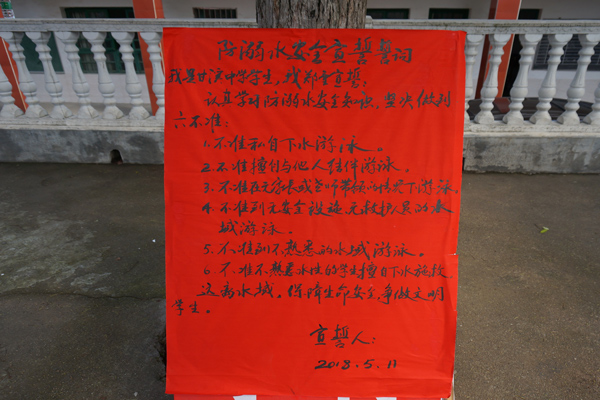 防溺水安全宣誓誓词
我是甘滨中学学生,我郑重宣誓:
认真学习防溺水安全知识,坚决做到
六不准:
1.不准私自下水游泳。
2.不准擅自与他人结伴游泳。
3.不准在无家长或老师带领的情况下游泳。
4.不准到无安全设施、无救护人员的水
域游泳。
5.不准到不熟悉的水域游泳。
6.不准不熟悉水性的学生擅自下水施救
远离水域。保障生命安全,争做文明
学生。
宣誓人:
2018.5.11